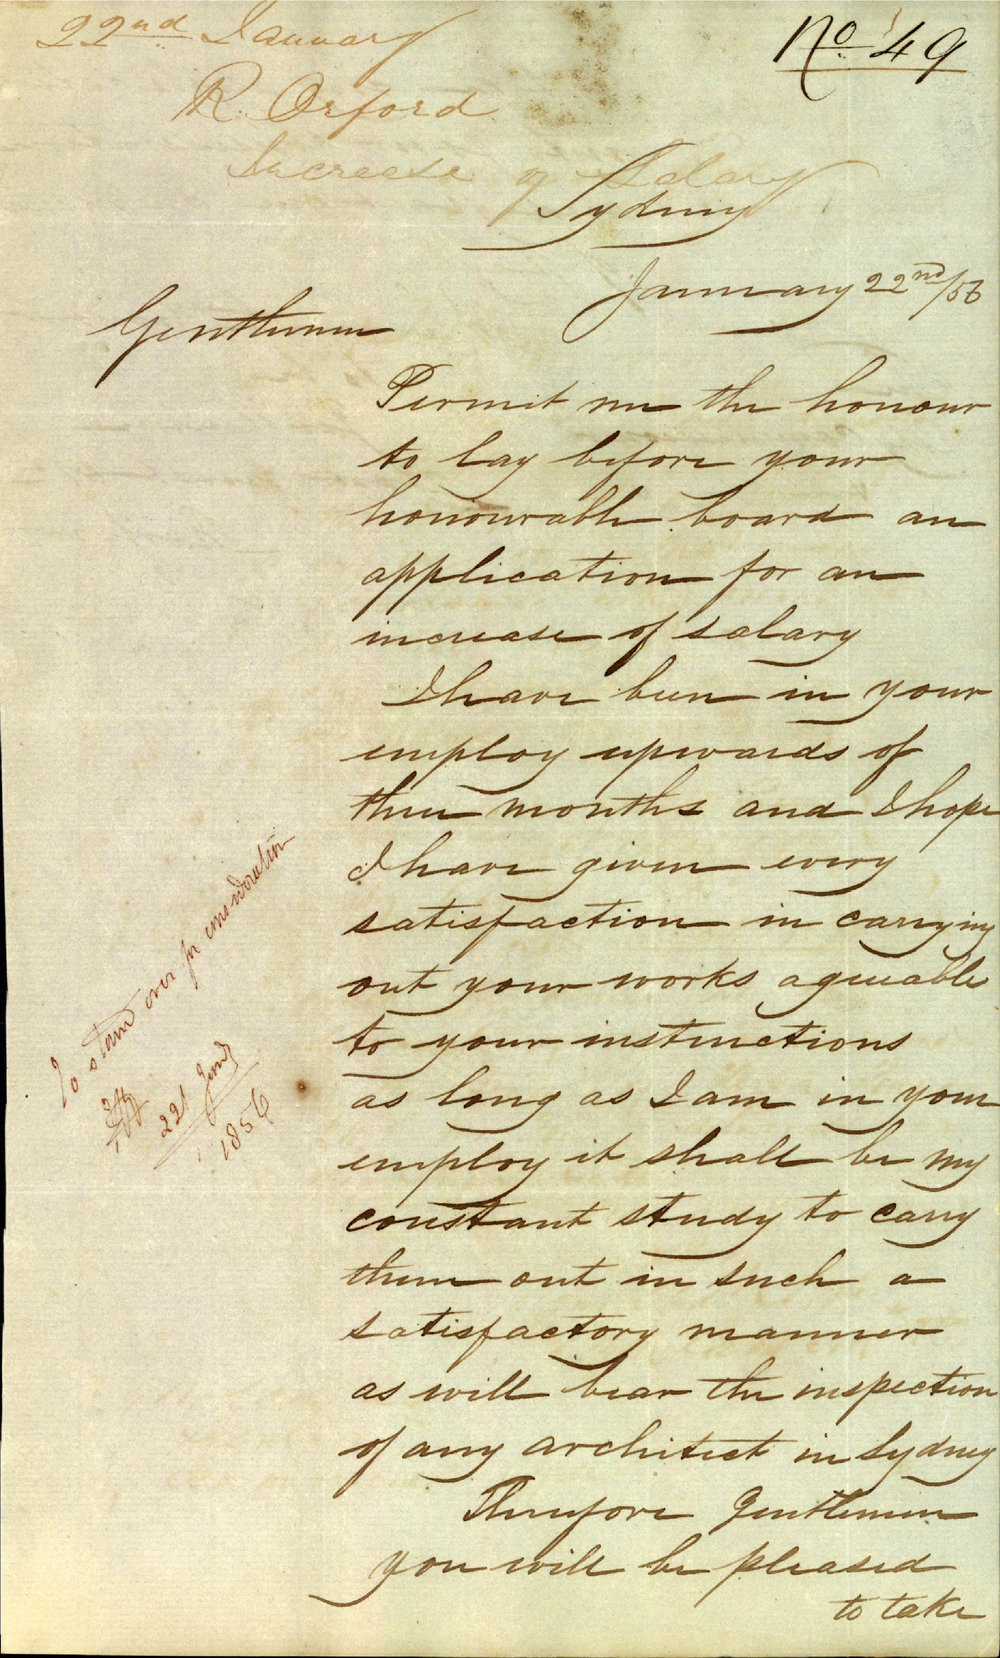 22nd January
No 49
R. Orford
Increase of Salary
Sydney
January 22nd/56
Gentlemen
Permit me the honour
to lay before your
honourable board an
application for an
increase of salary
I have been in your
employ upwards of
three months and I hope
I have given every
satisfaction in carrying
out your works agreeable
to your instructions
as long as I am in your
employ it shall be my
constant study to carry
them out in such a
satisfactory manner
as will bear the inspection
of any architect in Sydney
Therefore Gentlemen
you will be pleased
to take
To stand over for consideration
22 Jany
1856